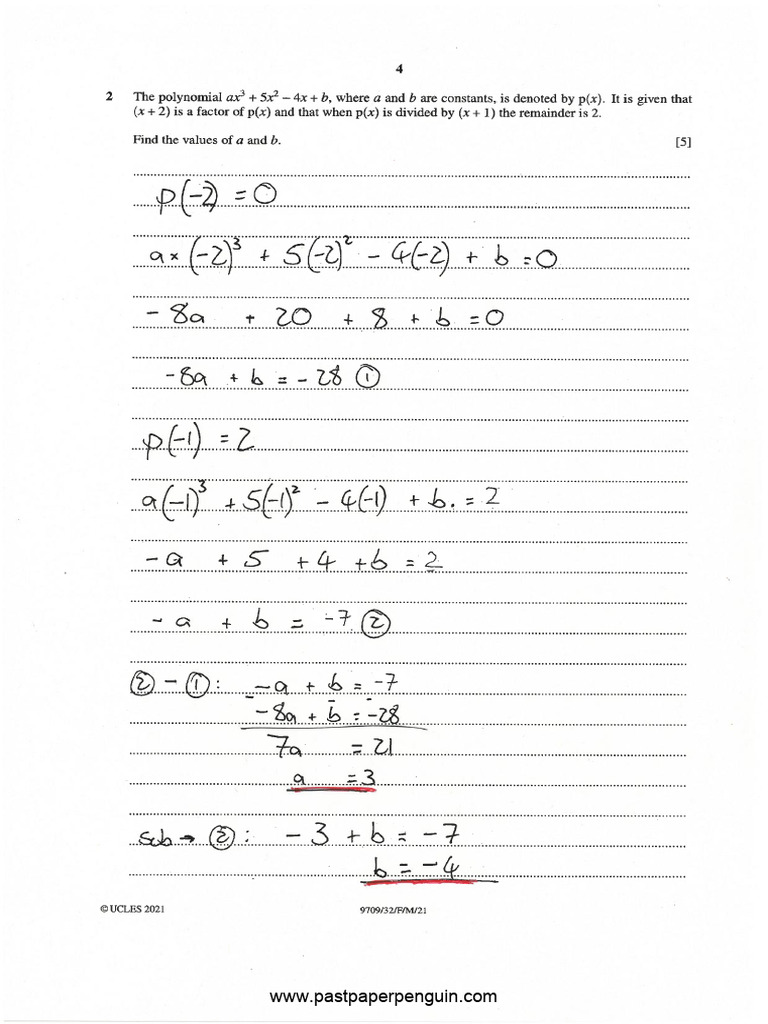 4
2 The polynomial ax³ + 5x² − 4x + b, where a and b are constants, is denoted by p(x). It is given that
(x + 2) is a factor of p(x) and that when p(x) is divided by (x + 1) the remainder is 2.
Find the values of a and b. [5]
p(-2) = 0
a × (-2)³ + 5(-2)² - 4(-2) + b = 0
- 8a + 20 + 8 + b = 0
-8a + b = -28 ①
p(-1) = 2
a(-1)³ + 5(-1)² - 4(-1) + b. = 2
-a + 5 + 4 + b = 2
-a + b = -7 ②
② - ①: -a + b = -7
- 8a + b = -28
7a = 21
a = 3
sub → ②: -3 + b = -7
b = -4
© UCLES 2021 9709/32/F/M/21
www.pastpaperpenguin.com